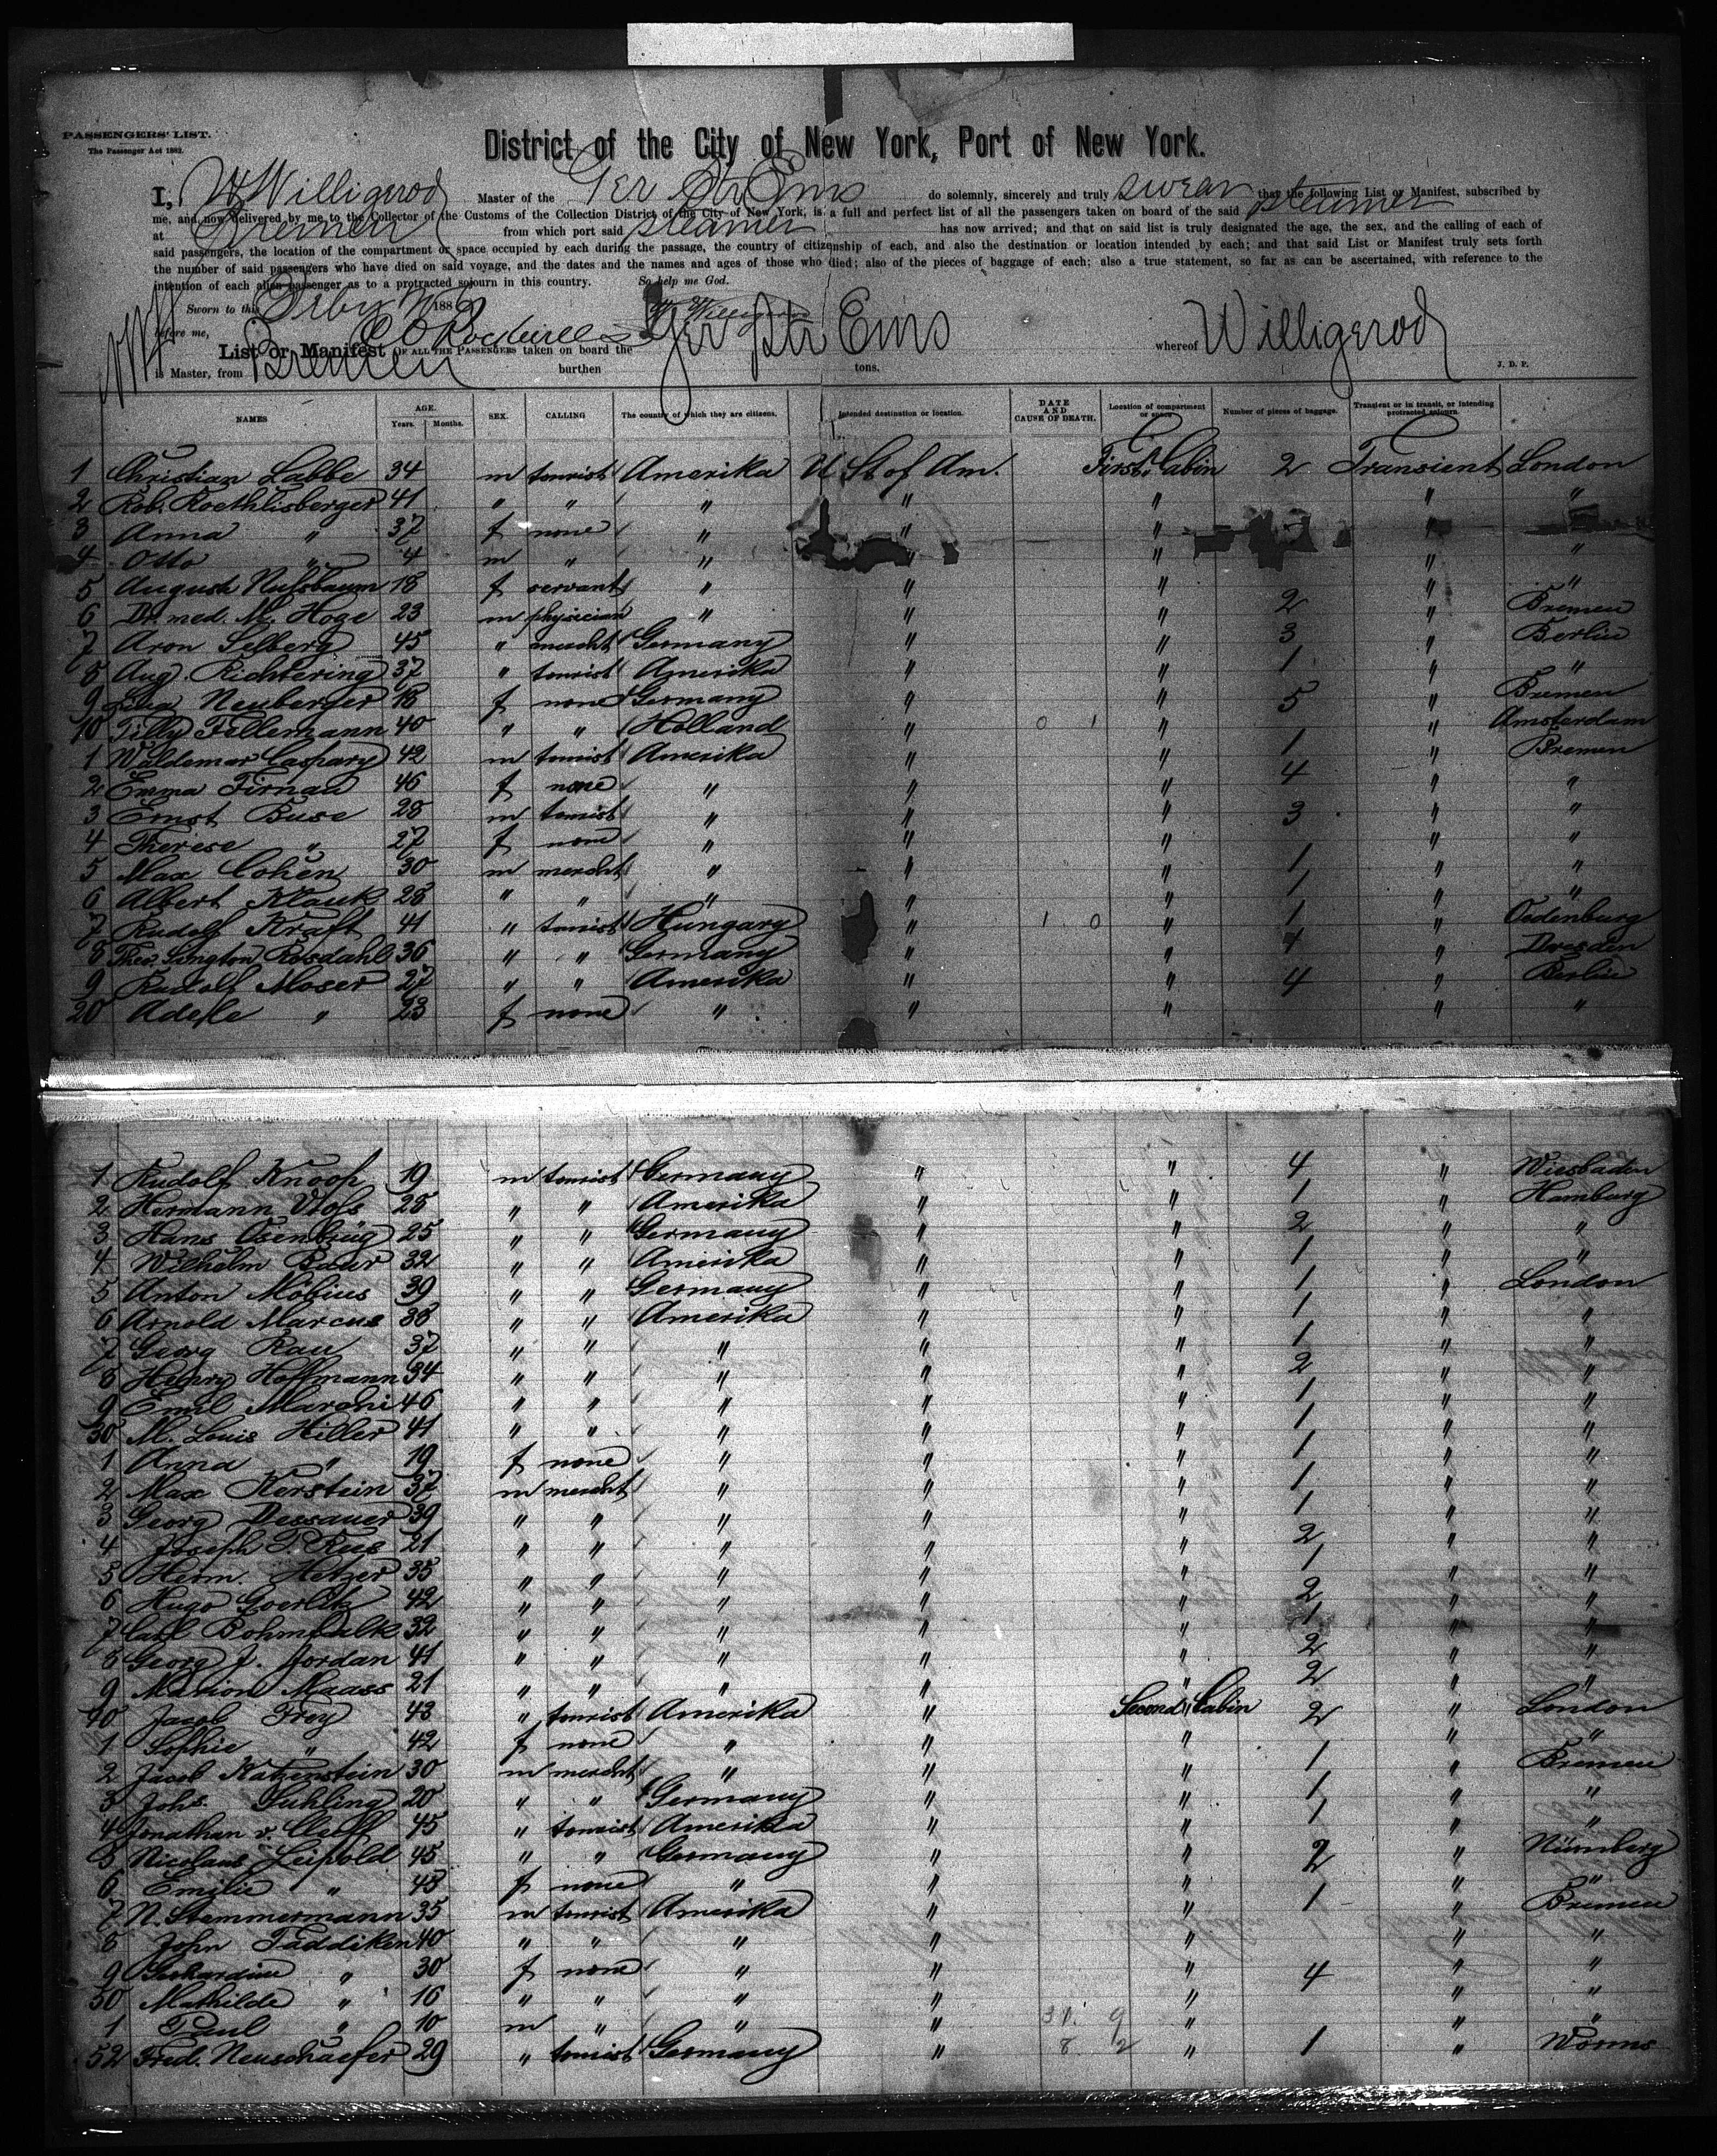 PASSENGERS' LIST.
The Passenger Act 1882.
District of the City of New York, Port of New York.
I, W Willigerod Master of the Ger Str Ems do solemnly, sincerely and truly swear that the following List or Manifest, subscribed by
me, and now delivered by me to the Collector of the Customs of the Collection District of the City of New York, is a full and perfect list of all the passengers taken on board of the said steamer
at Bremen from which port said steamer has now arrived; and that on said list is truly designated the age, the sex, and the calling of each of
said passengers, the location of the compartment or space occupied by each during the passage, the country of citizenship of each, and also the destination or location intended by each; and that said List or Manifest truly sets forth
the number of said passengers who have died on said voyage, and the dates and the names and ages of those who died; also of the pieces of baggage of each; also a true statement, so far as can be ascertained, with reference to the
intention of each alien passenger as to a protracted sojourn in this country. So help me God.
Sworn to this 188 W Willigerod
before me,
List or Manifest OF ALL THE PASSENGERS taken on board the Ger Str Ems whereof Willigerod
is Master, from Bremen burthen tons. J. D. P.
NAMES AGE. Years. Months. SEX. CALLING The country of which they are citizens. Intended destination or location. DATE AND CAUSE OF DEATH. Location of compartment or space Number of pieces of baggage. Transient or in transit, or intending protracted sojourn.
1 Christian Labbe 34 m tourist Amerika U St of Am. First Cabin 2 Transient London
2 Rob. Roethlisberger 41 " " " " " " "
3 Anna " 37 f none " " " "
4 Otto " 4 m " " " " "
5 August Nussbaum 18 f servant " " " " "
6 Dr. med. M. Hoge 23 m physician " " " 2 " Bremen
7 Aron Selberg 45 " mercht Germany " " 3 " Berlin
8 Aug. Richtering 37 " tourist Amerika " " 1 " "
9 Neuberger 18 f none Germany " " 5 " Bremen
10 Tilly Fellermann 40 " " Holland " 0 1 " " Amsterdam
1 Waldemar Caspary 42 m tourist Amerika " " 1 " Bremen
2 Emma Firnau 46 f none " " " 4 " "
3 Ernst Buse 28 m tourist " " " 3 " "
4 Therese " 27 f none " " " " "
5 Max Cohen 30 m mercht " " " 1 " "
6 Albert Klauk 28 " " " " " 1 " "
7 Rudolf Kraft 41 " tourist Hungary " 1 0 " 1 " Oedenburg
8 Theo. Rosdahl 36 " " Germany " " " Dresden
9 Rudolf Moser 27 " " Amerika " " 4 " Berlin
20 Adele " 23 f none " " " " "
1 Rudolf Knoop 19 m tourist Germany " " 4 " Wiesbaden
2 Hermann 28 " " Amerika " " 1 " Hamburg
3 Hans Osenbrüg 25 " " Germany " " 2 " "
4 Wilhelm Baur 32 " " Amerika " " 1 " "
5 Anton Möbius 39 " " Germany " " 1 " London
6 Arnold Marcus 38 " " Amerika " " 1 " "
7 Georg Rau 37 " " " " " 1 " "
8 Henry Hoffmann 34 " " " " " 2 " "
9 Emil 46 " " " " " 1 " "
30 M. Louis Hiller 41 " " " " " 1 " "
1 Anna " 19 f none " " " 1 " "
2 Max Kerstein 37 m mercht " " " 1 " "
3 Georg Dessauer 39 " " " " " 1 " "
4 Joseph 21 " " " " " 2 " "
5 Herm. Hetzer 35 " " " " " 1 " "
6 Hugo 42 " " " " " 2 " "
7 Carl Bohmfalk 32 " " " " " 1 " "
8 Georg J. Jordan 41 " " " " " 2 " "
9 Marion Maass 21 " " " " " 2 " "
40 Jacob Frey 43 " tourist Amerika " Second Cabin 2 " London
1 Sophie " 42 f none " " " " "
2 Jacob Katzenstein 30 m mercht " " " 1 " Bremen
3 Johs. Suhling 20 " " Germany " " 1 " "
4 Jonathan v. Cleff 45 " tourist Amerika " " 1 " "
5 Nicolaus Leipold 45 " " Germany " " 2 " Nürnberg
6 Emilie " 43 f none " " " " "
7 N. Stemmermann 35 m tourist Amerika " " 1 " Bremen
8 John Taddiken 40 " " " " " " "
9 Gerhardine " 30 f none " " " 4 " "
50 Mathilde " 16 " " " " " " "
1 Paul " 10 m " " " 31. 9 " " "
52 Fred. Neuschaefer 29 " tourist Germany " 8. 2 " 1 " Worms